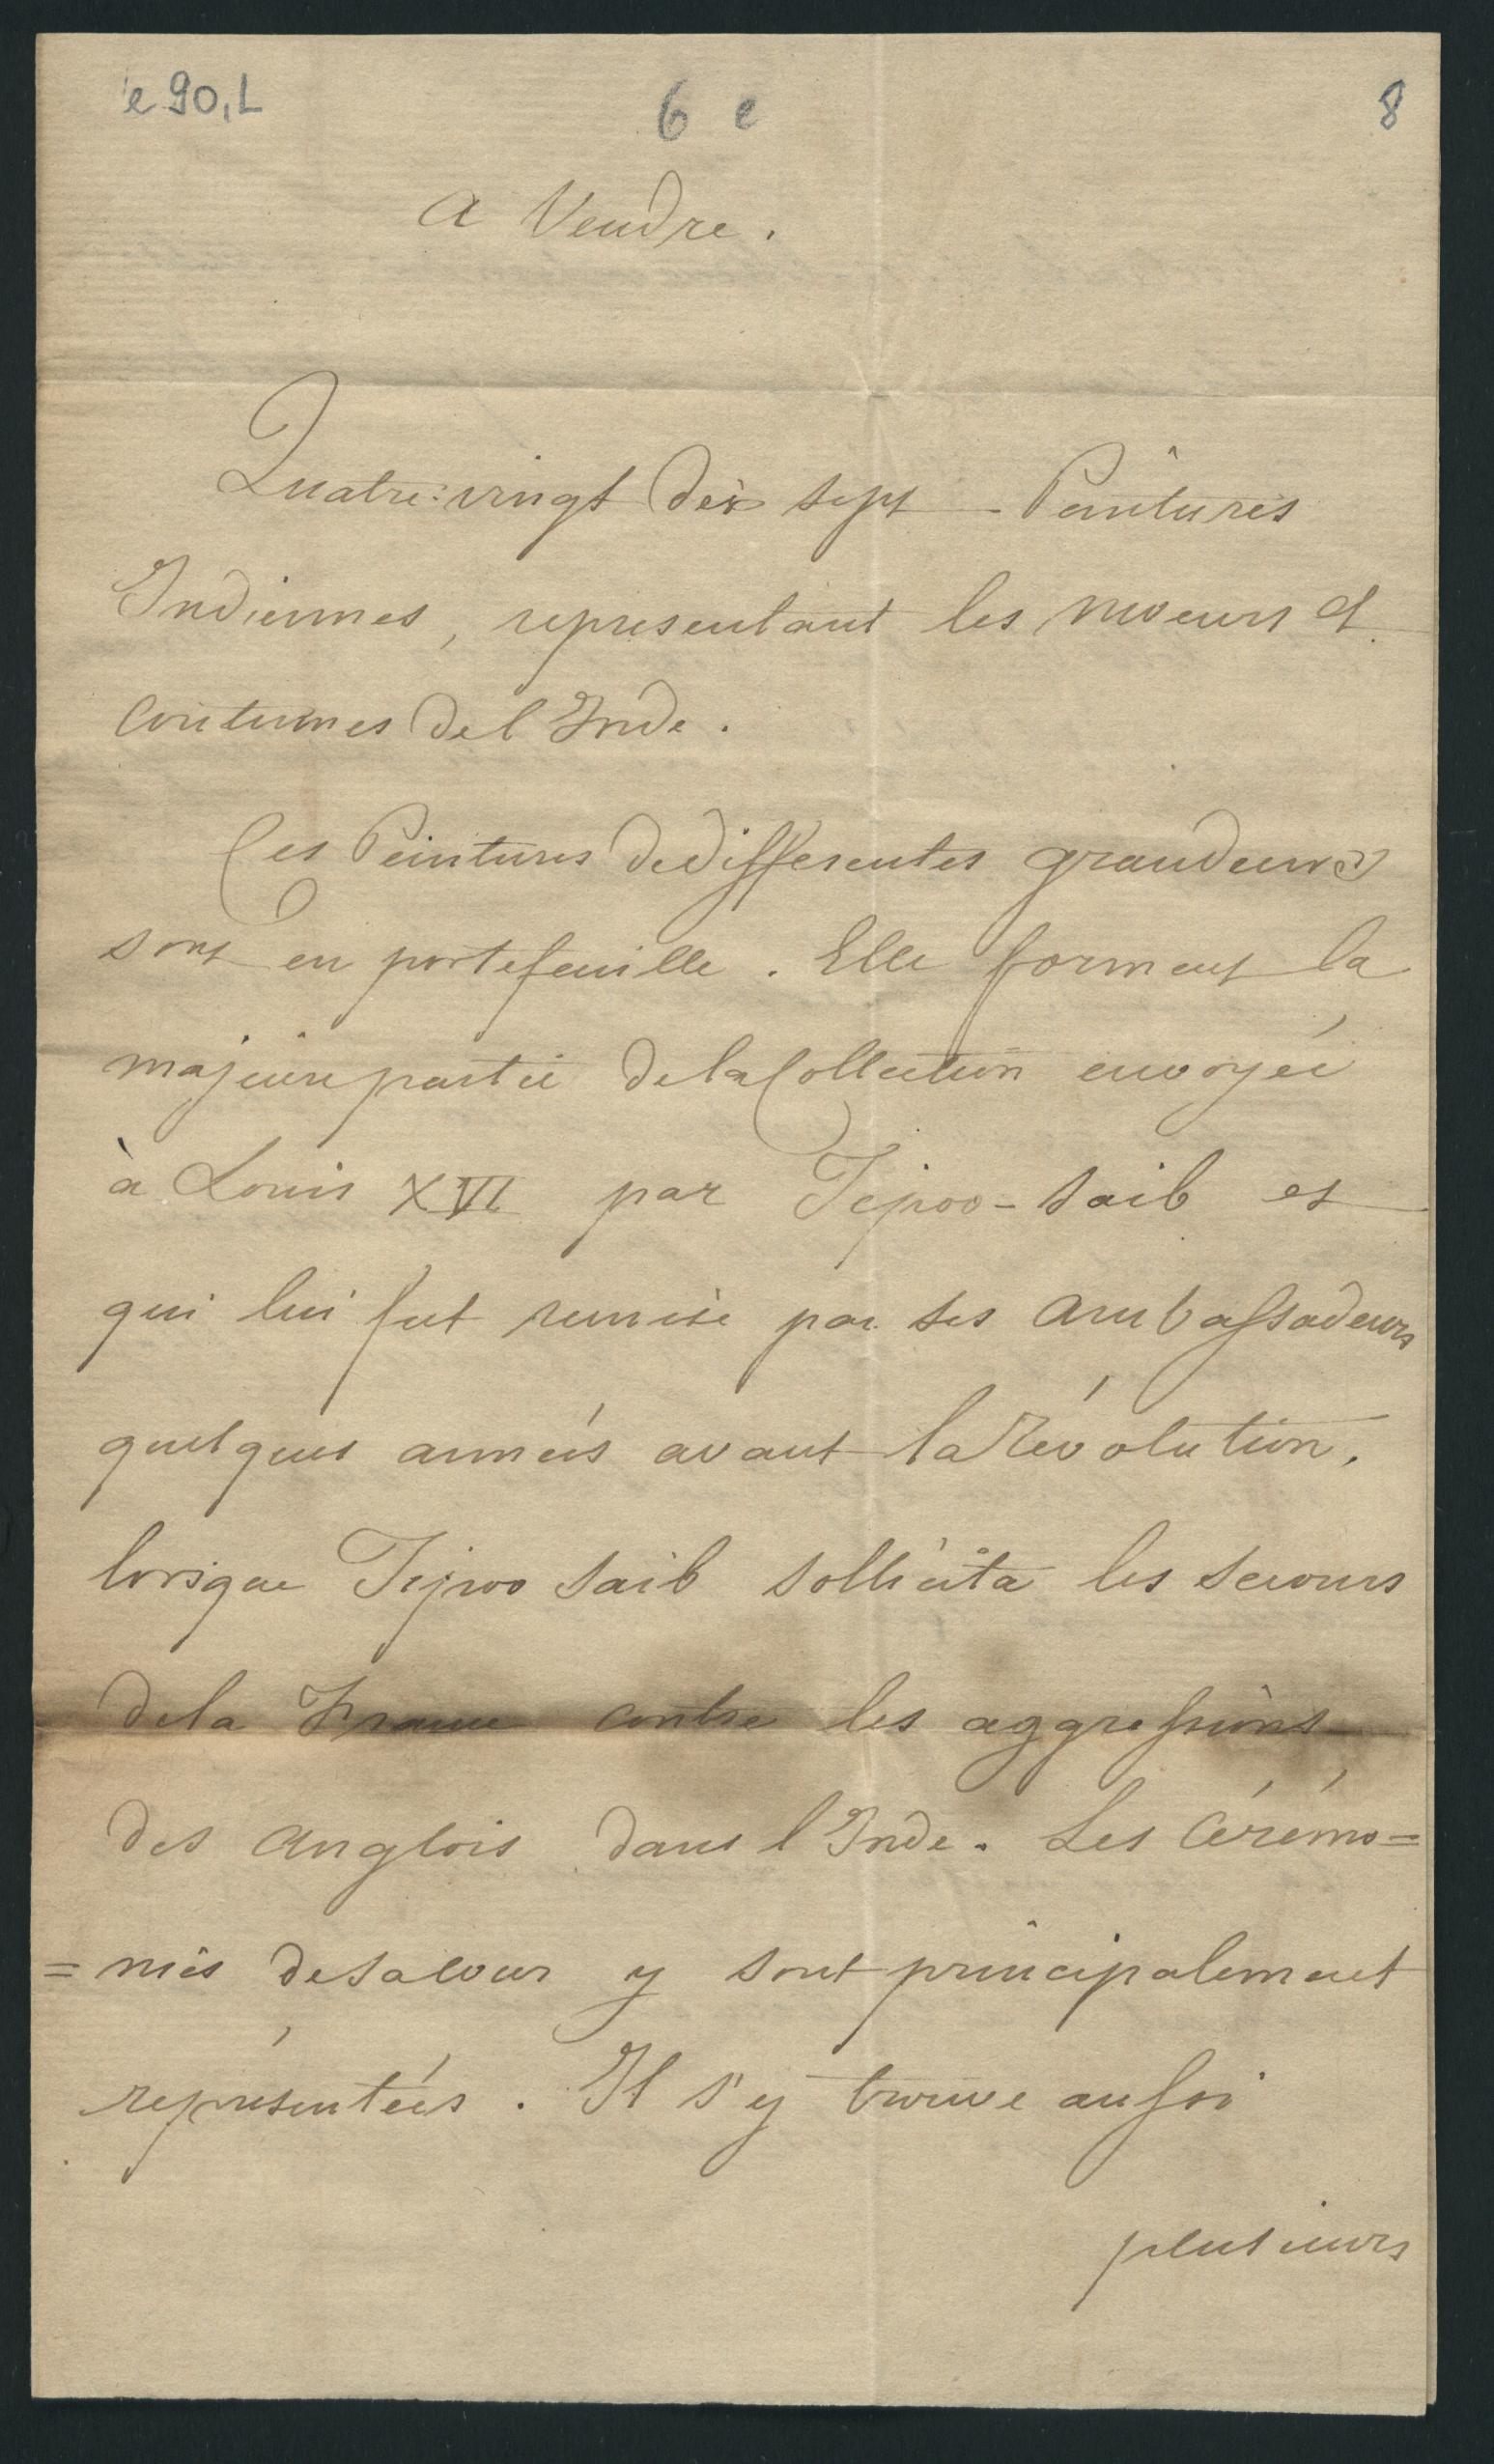 e 90, L 6 e 8
A Vendre.
Quatre-vingt dix sept Peintures
Indiennes, representant les moeurs et
coutumes de l'Inde.
Ces Peintures de differentes grandeurs
sont en portefeuille. Elle forment la
majeure partie de la Collection envoyée
à Louis XVI par Tipoo-saib et
qui lui fut remise par ses ambassadeurs
quelques années avant la Révolution,
lorsque Tipoo saib sollicita les secours
de la France contre les aggressions
des anglois dans l'Inde. Les Cérémo=
=nies de sa cour y sont principalement
représentées. Il s'y trouve aussi
plusieurs